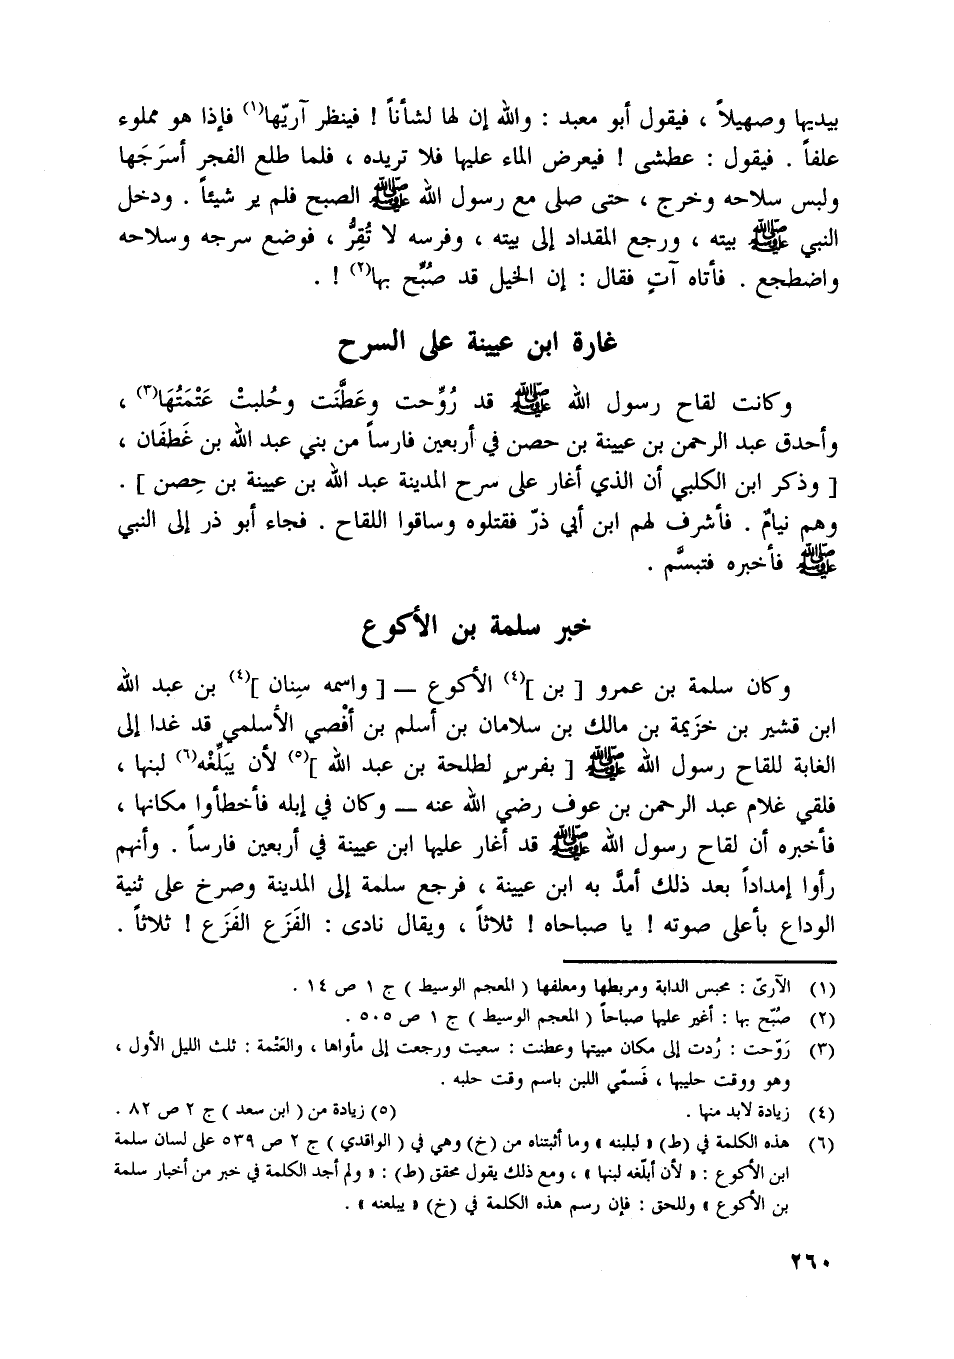 بيديها وصهيلاً ، فيقول أبو معبد : والله إن لها لشأناً ! فينظر آريّها(١) فإذا هو مملوء
علفاً . فيقول : عطشى ! فيعرض الماء عليها فلا تريده ، فلما طلع الفجر أسرَجَها
ولبس سلاحه وخرج ، حتى صلى مع رسول الله ﷺ الصبح فلم ير شيئاً . ودخل
النبي ﷺ بيته ، ورجع المقداد إلى بيته ، وفرسه لا تُقِرُّ ، فوضع سرجه وسلاحه
واضطجع . فأتاه آتٍ فقال : إن الخيل قد صُبِّح بها(٢) ! .
غارة ابن عيينة على السرح
وكانت لقاح رسول الله ﷺ قد رُوِّحت وعَطَّنَت وحُلبتْ عَتْمَتُهَا(٣) ،
وأحدق عبد الرحمن بن عيينة بن حصن في أربعين فارساً من بني عبد الله بن غَطَفَان ،
[ وذكر ابن الكلبي أن الذي أغار على سرح المدينة عبد الله بن عيينة بن حِصن ] .
وهم نيامٌ . فأشرف لهم ابن أبي ذرّ فقتلوه وساقوا اللقاح . فجاء أبو ذر إلى النبي
ﷺ فأخبره فتبسَّم .
خبر سلمة بن الأكوع
وكان سلمة بن عمرو [ بن ](٤) الأكوع — [ واسمه سِنان ](٤) بن عبد الله
ابن قشير بن خزَيمة بن مالك بن سلامان بن أسلم بن أفْصي الأسلمي قد غدا إلى
الغابة للقاح رسول الله ﷺ [ بفرسٍ لطلحة بن عبد الله ](٥) لأن يبَلِّغْه(٦) لبنها ،
فلقي غلام عبد الرحمن بن عوف رضي الله عنه — وكان في إبله فأخطأوا مكانها ،
فأخبره أن لقاح رسول الله ﷺ قد أغار عليها ابن عيينة في أربعين فارساً . وأنهم
رأوا إمداداً بعد ذلك أمدَّ به ابن عيينة ، فرجع سلمة إلى المدينة وصرخ على ثنية
الوداع بأعلى صوته ! يا صباحاه ! ثلاثاً ، ويقال نادى : الفَزَع الفَزَع ! ثلاثاً .
(١) الآريّ : محبس الدابة ومربطها ومعلفها ( المعجم الوسيط ) ج ١ ص ١٤ .
(٢) صُبّح بها : أغير عليها صباحاً ( المعجم الوسيط ) ج ١ ص ٥٠٥ .
(٣) رَوّحت : رُدت إلى مكان مبيتها وعطنت : سعيت ورجعت إلى مأواها ، والعَتْمة : ثلث الليل الأول ،
وهو ووقت حليبها ، فَسمّي اللبن باسم وقت حلبه .
(٤) زيادة لابد منها . (٥) زيادة من ( ابن سعد ) ج ٢ ص ٨٢ .
(٦) هذه الكلمة في (ط) « لبلبنه » وما أثبتناه من (خ) وهي في ( الواقدي ) ج ٢ ص ٥٣٩ على لسان سلمة
ابن الأكوع : « لأن أبلّغه لبنها » ، ومع ذلك يقول محقق (ط) : « ولم أجد الكلمة في خبر من أخبار سلمة
بن الأكوع » وللحق : فإن رسم هذه الكلمة في (خ) « يبلعنه » .
٢٦٠